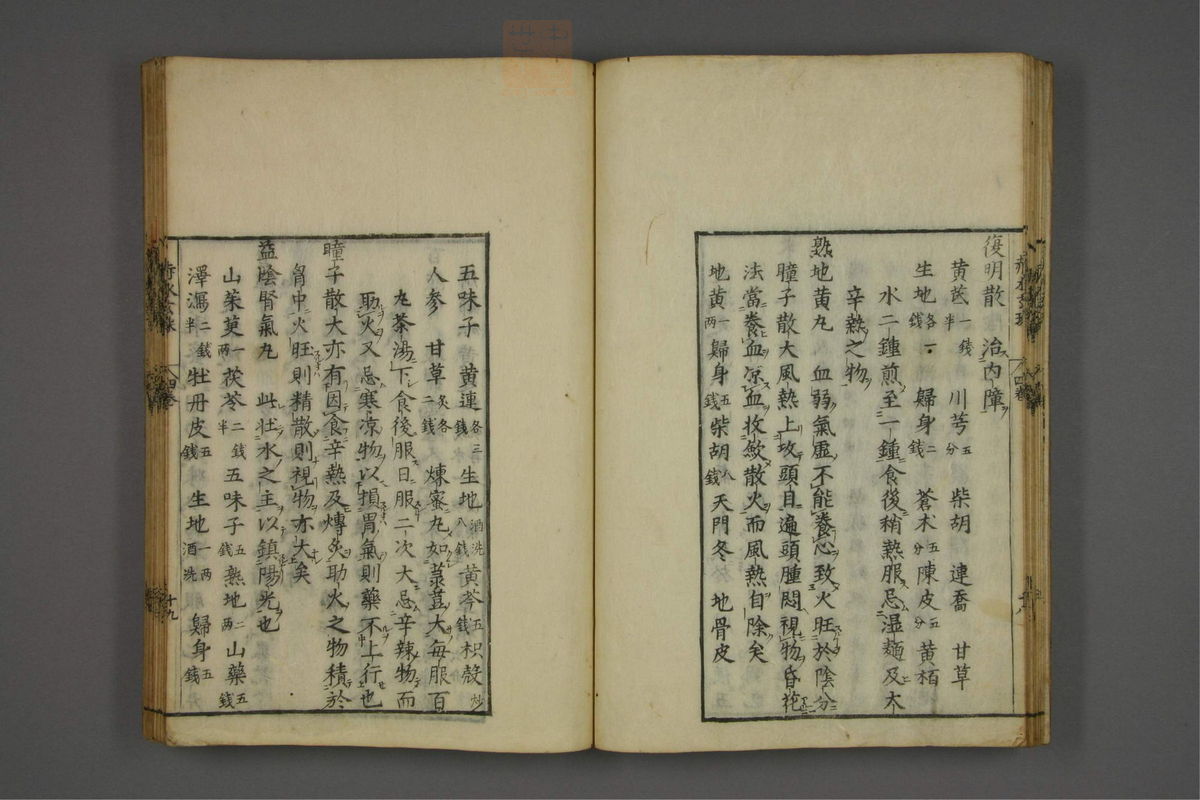 復明散 治内障
黄芪一錢半 川芎五分 柴胡 連喬 甘草
生地各一錢 歸身二錢 蒼朮五分 陳皮五分 黄栢
水二鍾煎至一鍾食後稍熱服忌湿麺及大
辛熱之物
熟地黄丸 血弱氣虚不能養心致火旺於陰分
瞳子散大風熱上攻頭目遍頭腫悶視物昏花
法當養血凉血收歛散火而風熱自除矣
地黄一两 歸身五錢 柴胡八錢 天門冬 地骨皮
五味子 黄連各三錢 生地酒洗八錢 黄芩五錢 枳殻炒
人参 甘草炙各二錢 煉蜜丸如菉荳大每服百
丸茶湯下食後服日服二次大忌辛辣物而
助火又忌寒凉物以損胃氣則藥不上行也
瞳子散大亦有因食辛熱及煿炙助火之物積於
胷中火旺則精散則視物亦大矣
益陰腎氣丸 此壮水之主以鎮陽光也
山茱萸一两 茯苓二錢半 五味子五錢 熟地二两 山藥五錢
澤瀉二錢半 牡丹皮五錢 生地一两酒洗 歸身五錢
四卷
十九